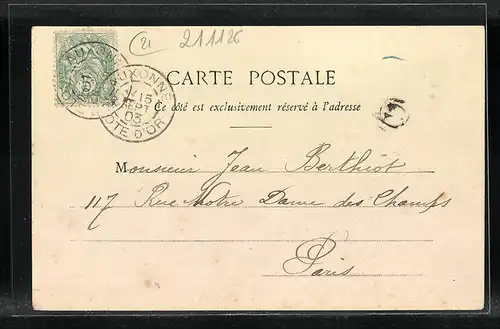 21 21 1126
AUXONNE
5
AUXONNE
15
SEPT
03
CÔTE D'OR
CARTE POSTALE
Ce côté est exclusivement réservé à l'adresse
Monsieur Jean Berthiot
117 Rue Notre Dame des Champs
Paris